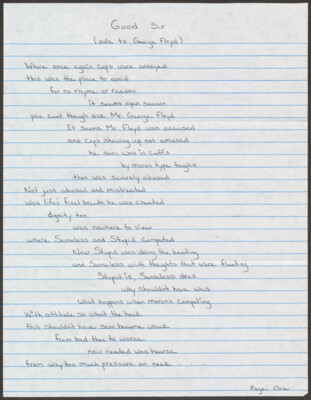 Good Sir
(ode to George Floyd)
Where once again cops were annoyed
this was the place to avoid
for no rhyme or reason
it seems open season
you cant though ask Mr. George Floyd
It seems Mr Floyd was accused
and cops showing up not amused
he soon was in cuffs
by moron type toughs
then was severely abused
Not just abused and mistreated
was life's final breath he was cheated
dignity too
was nowhere to view
where Senseless and Stupid competed
Now Stupid was doing the beating
and Senseless with thoughts that were fleeting
Stupid is, Senseless does
why shouldn't have was
what happens when morons competing
With attitude so what the heck
this shouldn't have soon became wreck
from bad then to worse
now needed was hearse
from way too much pressure on neck . . . . .
Page One